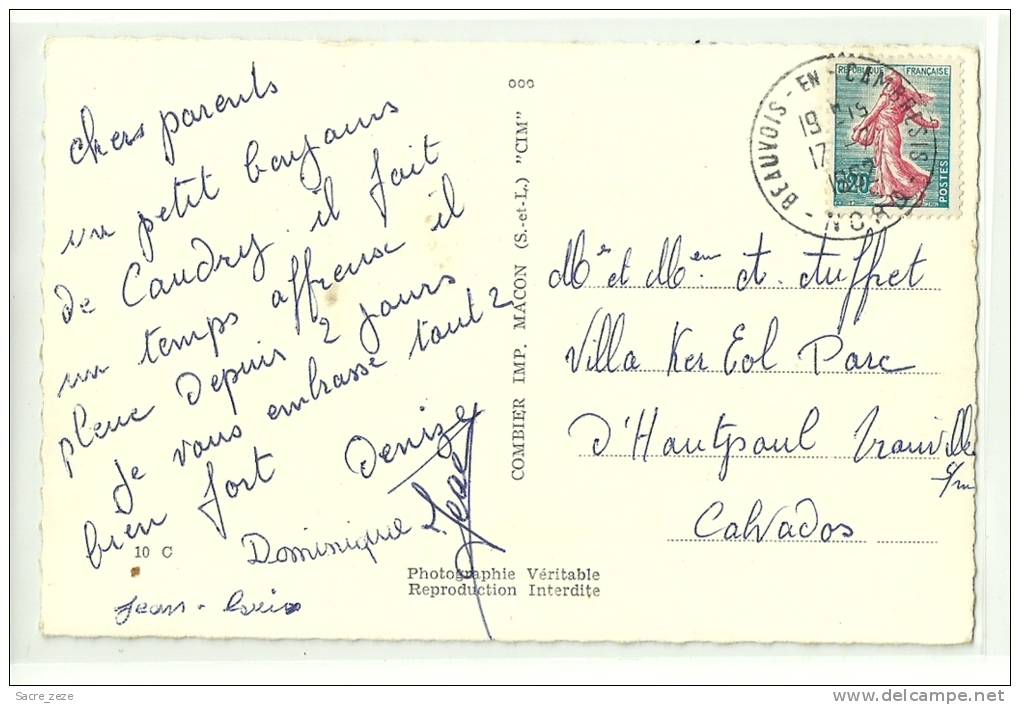 chers parents
un petit bonjours
de Caudry il fait
un temps affreuse il
pleuc depuis 2 jours
je vous embrasse tout 2
bien fort Denize
Dominique
Jean-Louis
10 C
Photographie Véritable
Reproduction Interdite
COMBIER IMP. MACON (S.-et-L.) "CIM"
BEAUVOIS - EN - CAMBRESIS
NORD
REPUBLIQUE FRANÇAISE
0,20
POSTES
Mr et Mem A. Auffret
Villa Ker Eol Parc
D'Hautpoul Trouville
s/m
Calvados
Sacre_zeze
www.delcampe.net